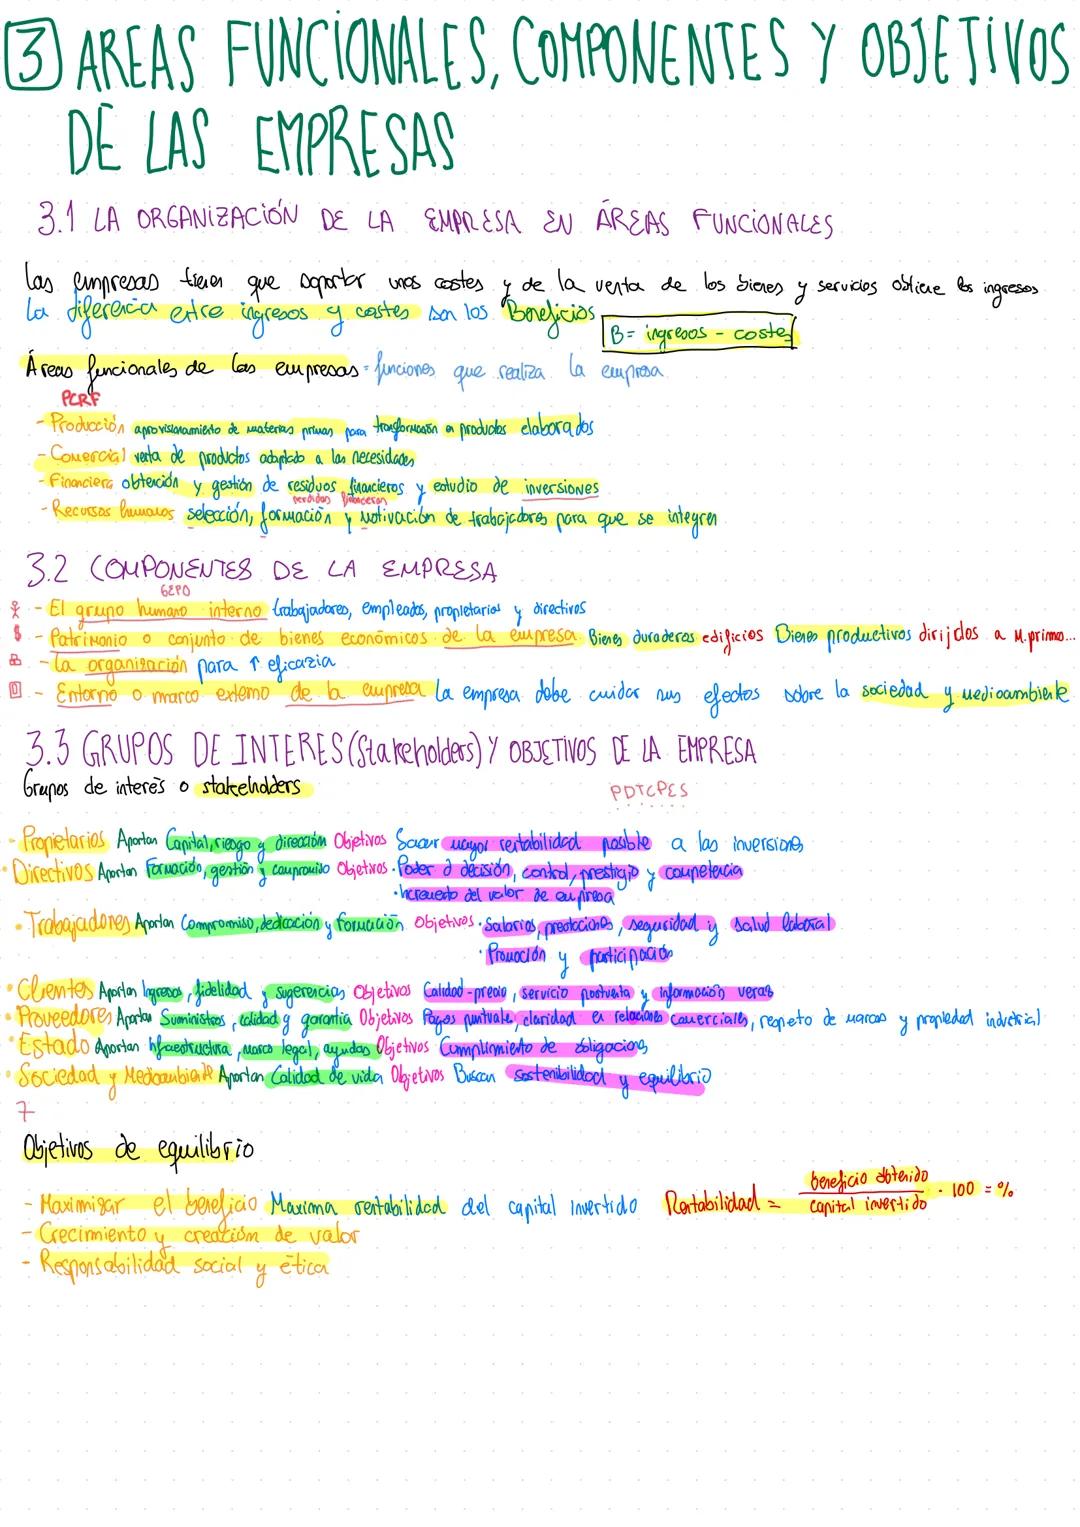 3 AREAS FUNCIONALES, COMPONENTES Y OBJETIVOS
DE LAS EMPRESAS
3.1 LA ORGANIZACIÓN DE LA EMPRESA EN ÁREAS FUNCIONALES
Las empresas tienen que soportar unos costes y de la venta de los bienes y servicios obtiene los ingresos
La diferencia entre ingresos y costes son los Beneficios
B= ingresos - costes
Áreas funcionales de las empresas = funciones que realiza la empresa
PCRF
- Producción aprovisionamiento de materias primas para transformación en productos elaborados
- Comercial venta de productos adaptado a las necesidades
- Financiera obtención y gestión de residuos financieros y estudio de inversiones
perdidas financieras
- Recursos humanos selección, formación y motivación de trabajadores para que se integren
3.2 COMPONENTES DE LA EMPRESA
GEPO
- El grupo humano interno trabajadores, empleados, propietarios y directivos
$ - Patrimonio o conjunto de bienes económicos de la empresa Bienes duraderos edificios Bienes productivos dirijdos a M.prima...
- La organización para ↑ eficazia
- Entorno o marco externo de la empresa La empresa debe cuidar sus efectos sobre la sociedad y medioambiente
3.3 GRUPOS DE INTERES (Stakeholders) Y OBJETIVOS DE LA EMPRESA
Grupos de interés o stakeholders
PDTCPES
· Propietarios Aportan Capital, riesgo y dirección Objetivos Sacar mayor rentabilidad posible a las inversiones
· Directivos Aportan Formación, gestión y compromiso Objetivos · Poder d decisión, control, prestigio y competencia
· Incremento del valor de empresa
· Trabajadores Aportan Compromiso, dedicación y formación Objetivos · Salarios, prestaciones, seguridad y salud laboral
· Promoción y participación
· Clientes Aportan Ingresos, fidelidad y sugerencias Objetivos Calidad-precio, servicio postventa y información veraz
· Proveedores Aportan Suministros, calidad y garantía Objetivos Pagos puntuale, claridad en relaciones comerciales, respeto de marcas y propiedad industrial
· Estado Aportan Infraestructura, marco legal, ayudas Objetivos Cumplimiento de obligaciones
· Sociedad y Medioambiente Aportan Calidad de vida Objetivos Buscan sostenibilidad y equilibrio
7
Objetivos de equilibrio
- Maximizar el beneficio Maxima rentabilidad del capital invertido Rentabilidad = beneficio obtenido / capital invertido · 100 = %
- Crecimiento y creación de valor
- Responsabilidad social y ética